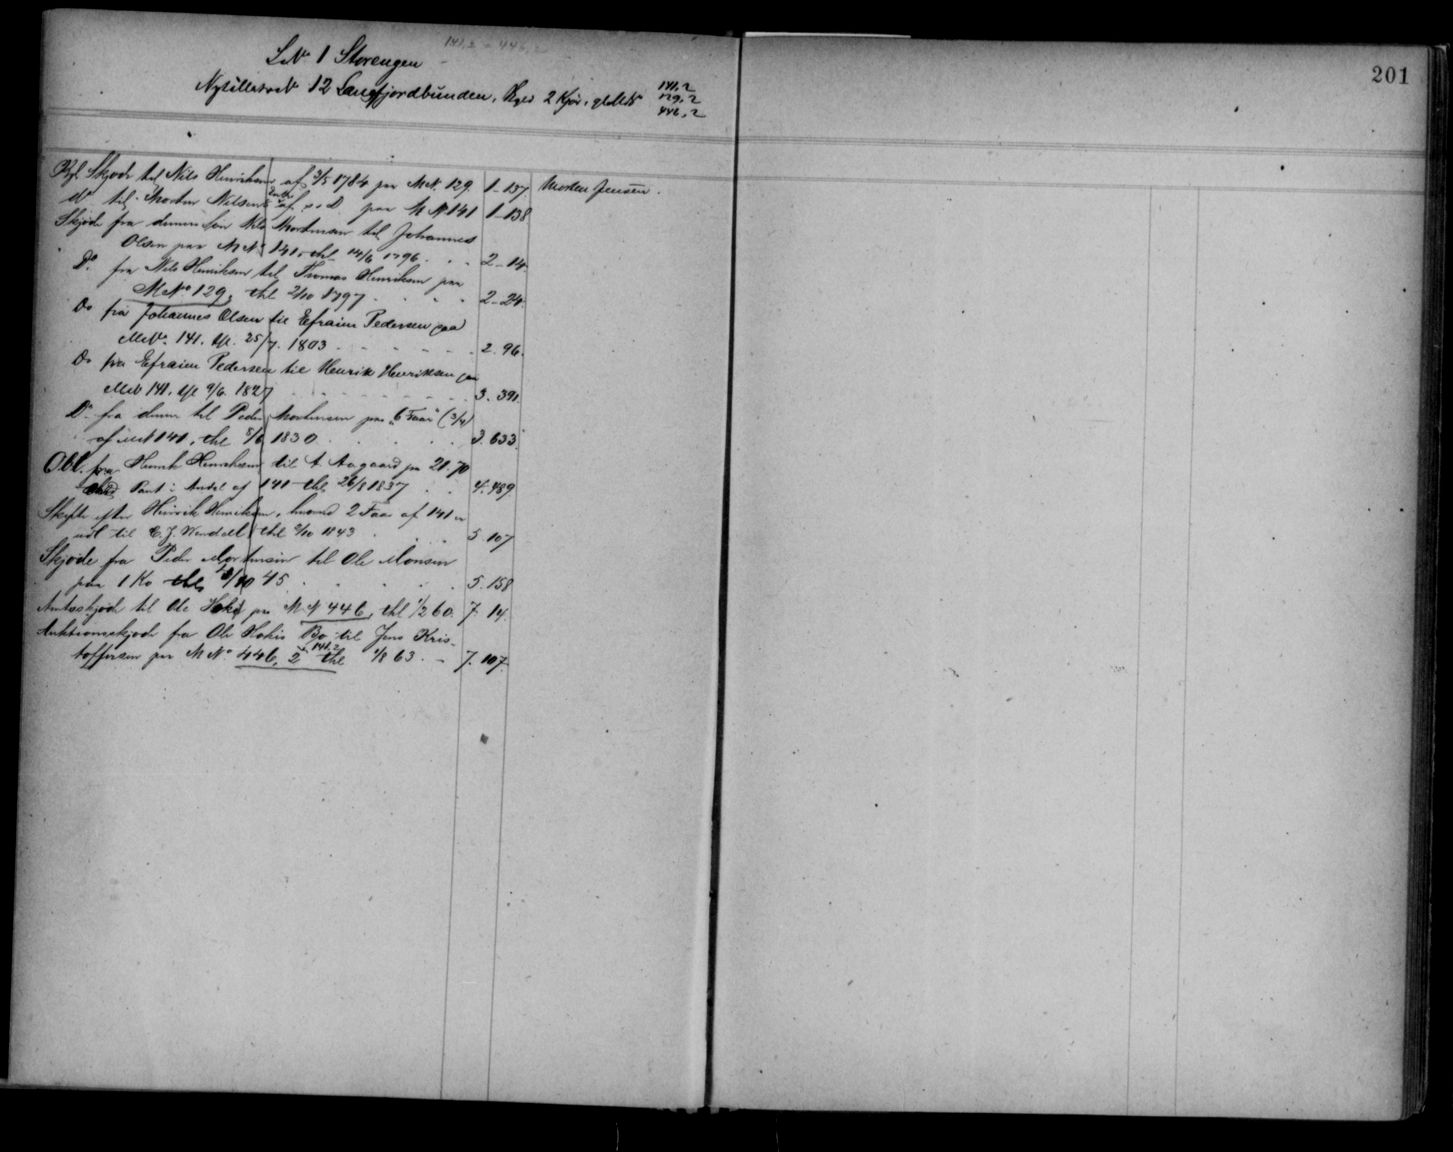 141,2 = 446,2
201
LNo 1 Storengen
Nytillæs No 12 Langfjordbunden, Skyld 2 Kjør, gl. MN 141,2
129,2
446,2
Kgl. Skjøde til Nils Henriksen af 3/5 1784 paa MN. 129 1-137 Morten Jensen.
do til Morten Nilsen af s. D. paa MN 141 1-138
Skjøde fra dennes Søn Nils Mortensen til Johannes
Olsen paa MN 141, thl 14/6 1796 . . 2-14.
Do fra Nils Henriksen til Thomas Henriksen paa
MNo 129, thl 2/10 1797 . . . 2-24.
Do fra Johannes Olsen til Efraim Pedersen paa
MNo 141. thl. 25/7. 1803 . . . . 2. 96.
Do fra Efraim Pedersen til Henrik Henriksen paa
MN 141. thl 9/6. 1827 . . . . 3. 391.
Do fra denne til Peder Mortensen paa "6 Faar" (3/4)
af MN 141, thl 8/6 1830 . . . . 3. 633
Obl. fra Henrik Henriksen til A. Aagaard paa 21. 70
Pant i Andel af 141 thl 26/8 1837 . . 4. 489
Skifte efter Hinrik Henriksen, hvorved 2 Faar af 141 er
udl til C. J. Wendell thl 2/10 1843 . . . 5. 107
Skjøde fra Peder Mortensen til Ole Monsen
paa 1 Ko thl 10 45 . . . . 5. 158
Amtsskjøde til Ole Hoki paa MN 446, thl 1/2 60. 7. 14.
Auktionsskjøde fra Ole Hokis Bo til Jens Kris-
toffersen paa MNo 446, 2 141,2 thl 1/8 63. - 7. 107.